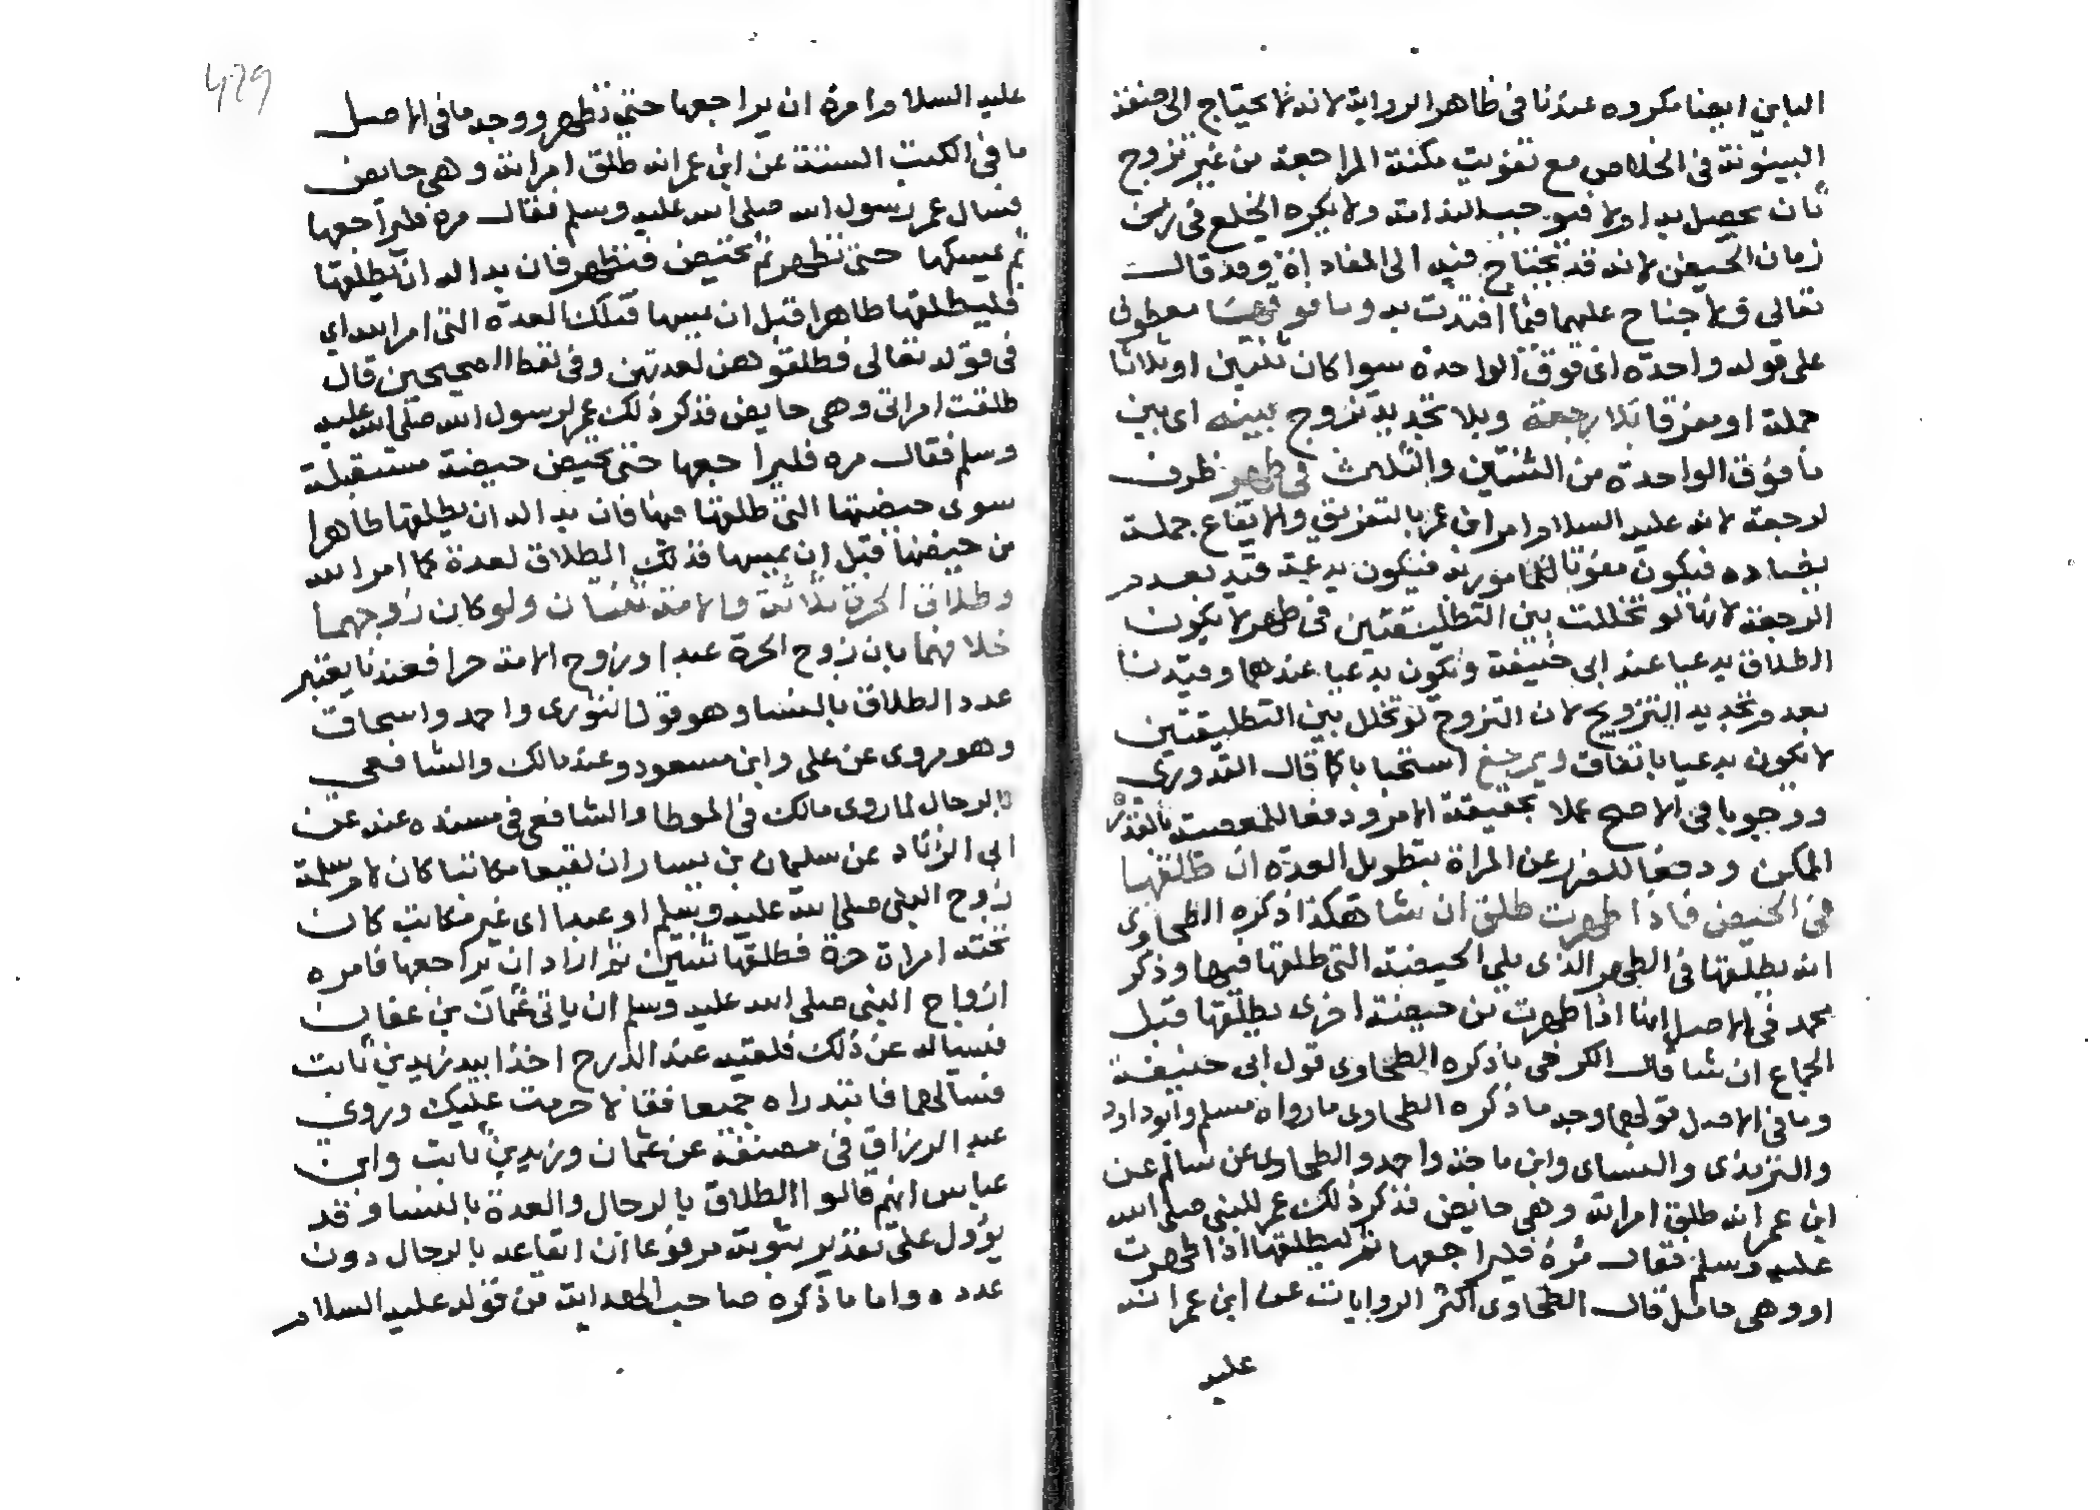 الباين ايضا مكروه عندنا فى ظاهر الرواية لانه لا يحتاج الى صفة
البينونة فى الخلاص مع تفويت مكنة المراجعة من غير تزوج
ثان يحصل به اولا فيوجب الندامة ولا يكره الخلع فى زمن
زمان الحيض لانه قد يحتاج فيه الى المفاداة وقد قال
تعالى فلا جناح عليهما فيما افتدت به وما فوقهما معطوف
على قوله واحدة اى فوق الواحدة سوا كان ثنتين او ثلاثا
جملة او مفرقا بلا رجعة وبلا تجديد تزوج بينه اى بين
ما فوق الواحدة من الثنتين والثلاث فى طهر ظرف
لرجعة لانه عليه السلام امر ابن عمر بالتفريق والايقاع جملة
يضاده فيكون مفوتا للمامور به فيكون بدعة قيد بعدم
الرجعة لانها لو تخللت بين التطليقتين فى طهر لا يكون
الطلاق بدعيا عند ابى حنيفة ويكون بدعيا عندهما وقيدنا
بعدم تجديد التزويج لان التزوج لو تخلل بين التطليقتين
لا يكون بدعيا باتفاق ويرجع استحبابا كما قال القدورى
ووجوبا فى الاصح عملا بحقيقة الامر ودفعا للمعصية بالقدر
الممكن ودفعا للضرر عن المراة بتطويل العدة ان طلقها
فى الحيض فاذا طهرت طلق ان شا هكذا ذكره الطحاوى
انه يطلقها فى الطهر الذى يلى الحيضة التى طلقها فيها وذكر
محمد فى الاصل انها اذا طهرت من حيضة اخرى يطلقها قبل
الجماع ان شا قال الكرخى ما ذكره الطحاوى قول ابى حنيفة
وما فى الاصل قولهما وجه ما ذكره الطحاوى ما رواه مسلم وابو داود
والترمذى والنساى وابن ماجة واحمد والطحاوى عن سالم عن
ابن عمر انه طلق امراته وهى حائض فذكر ذلك عمر للنبى صلى الله
عليه وسلم فقال مره فليراجعها ثم ليطلقها اذا طهرت
او وهى حامل قال الطحاوى اكثر الروايات عن ابن عمر انه
عليه
429
عليه السلام امره ان يراجعها حتى تطهر ووجه ما فى الاصل
ما فى الكتب الستة عن ابن عمر انه طلق امراته وهى حايض
فسال عمر رسول الله صلى الله عليه وسلم فقال مره فليراجعها
ثم يمسكها حتى تطهر ثم تحيض فتطهر فان بدا له ان يطلقها
فليطلقها طاهرا قبل ان يمسها فتلك العدة التى امر الله اى
فى قوله تعالى فطلقوهن لعدتهن وفى لفظ الصحيحين قال
طلقت امراتى وهى حايض فذكر ذلك عمر لرسول الله صلى الله عليه
وسلم فقال مره فليراجعها حتى تحيض حيضة مستقبلة
سوى حيضتها التى طلقها فيها فان بدا له ان يطلقها طاهرا
من حيضها قبل ان يمسها فذلك الطلاق لعدة كما امر الله
وطلاق الحرة ثلاثة والامة ثنتان ولو كان زوجهما
خلافهما بان زوج الحرة عبدا وزوج الامة حرا فعندنا يعتبر
عدد الطلاق بالنسا وهو قول الثورى واحمد واسحاق
وهو مروى عن على وابن مسعود وعند مالك والشافعى
بالرجال لما روى مالك فى الموطا والشافعى فى مسنده عنه عن
ابى الزناد عن سليمان بن يسار ان نفيعا مكاتبا كان لام سلمة
زوج النبى صلى الله عليه وسلم او عبدا اى غير مكاتب كان
تحته امراة حرة فطلقها ثنتين ثم اراد ان يراجعها فامره
ازواج النبى صلى الله عليه وسلم ان ياتى عثمان بن عفان
فيساله عن ذلك فلقيه عند الدرج اخذا بيد زيد بن ثابت
فسالهما فابتدراه جميعا فقالا حرمت عليك وروى
عبد الرزاق فى مصنفه عن عثمان وزيد بن ثابت وابن
عباس انهم قالوا الطلاق بالرجال والعدة بالنسا وقد
يؤول على تقدير ثبوته مرفوعا ان ايقاعه بالرجال دون
عدده واما ما ذكره صاحب الهداية من قوله عليه السلام